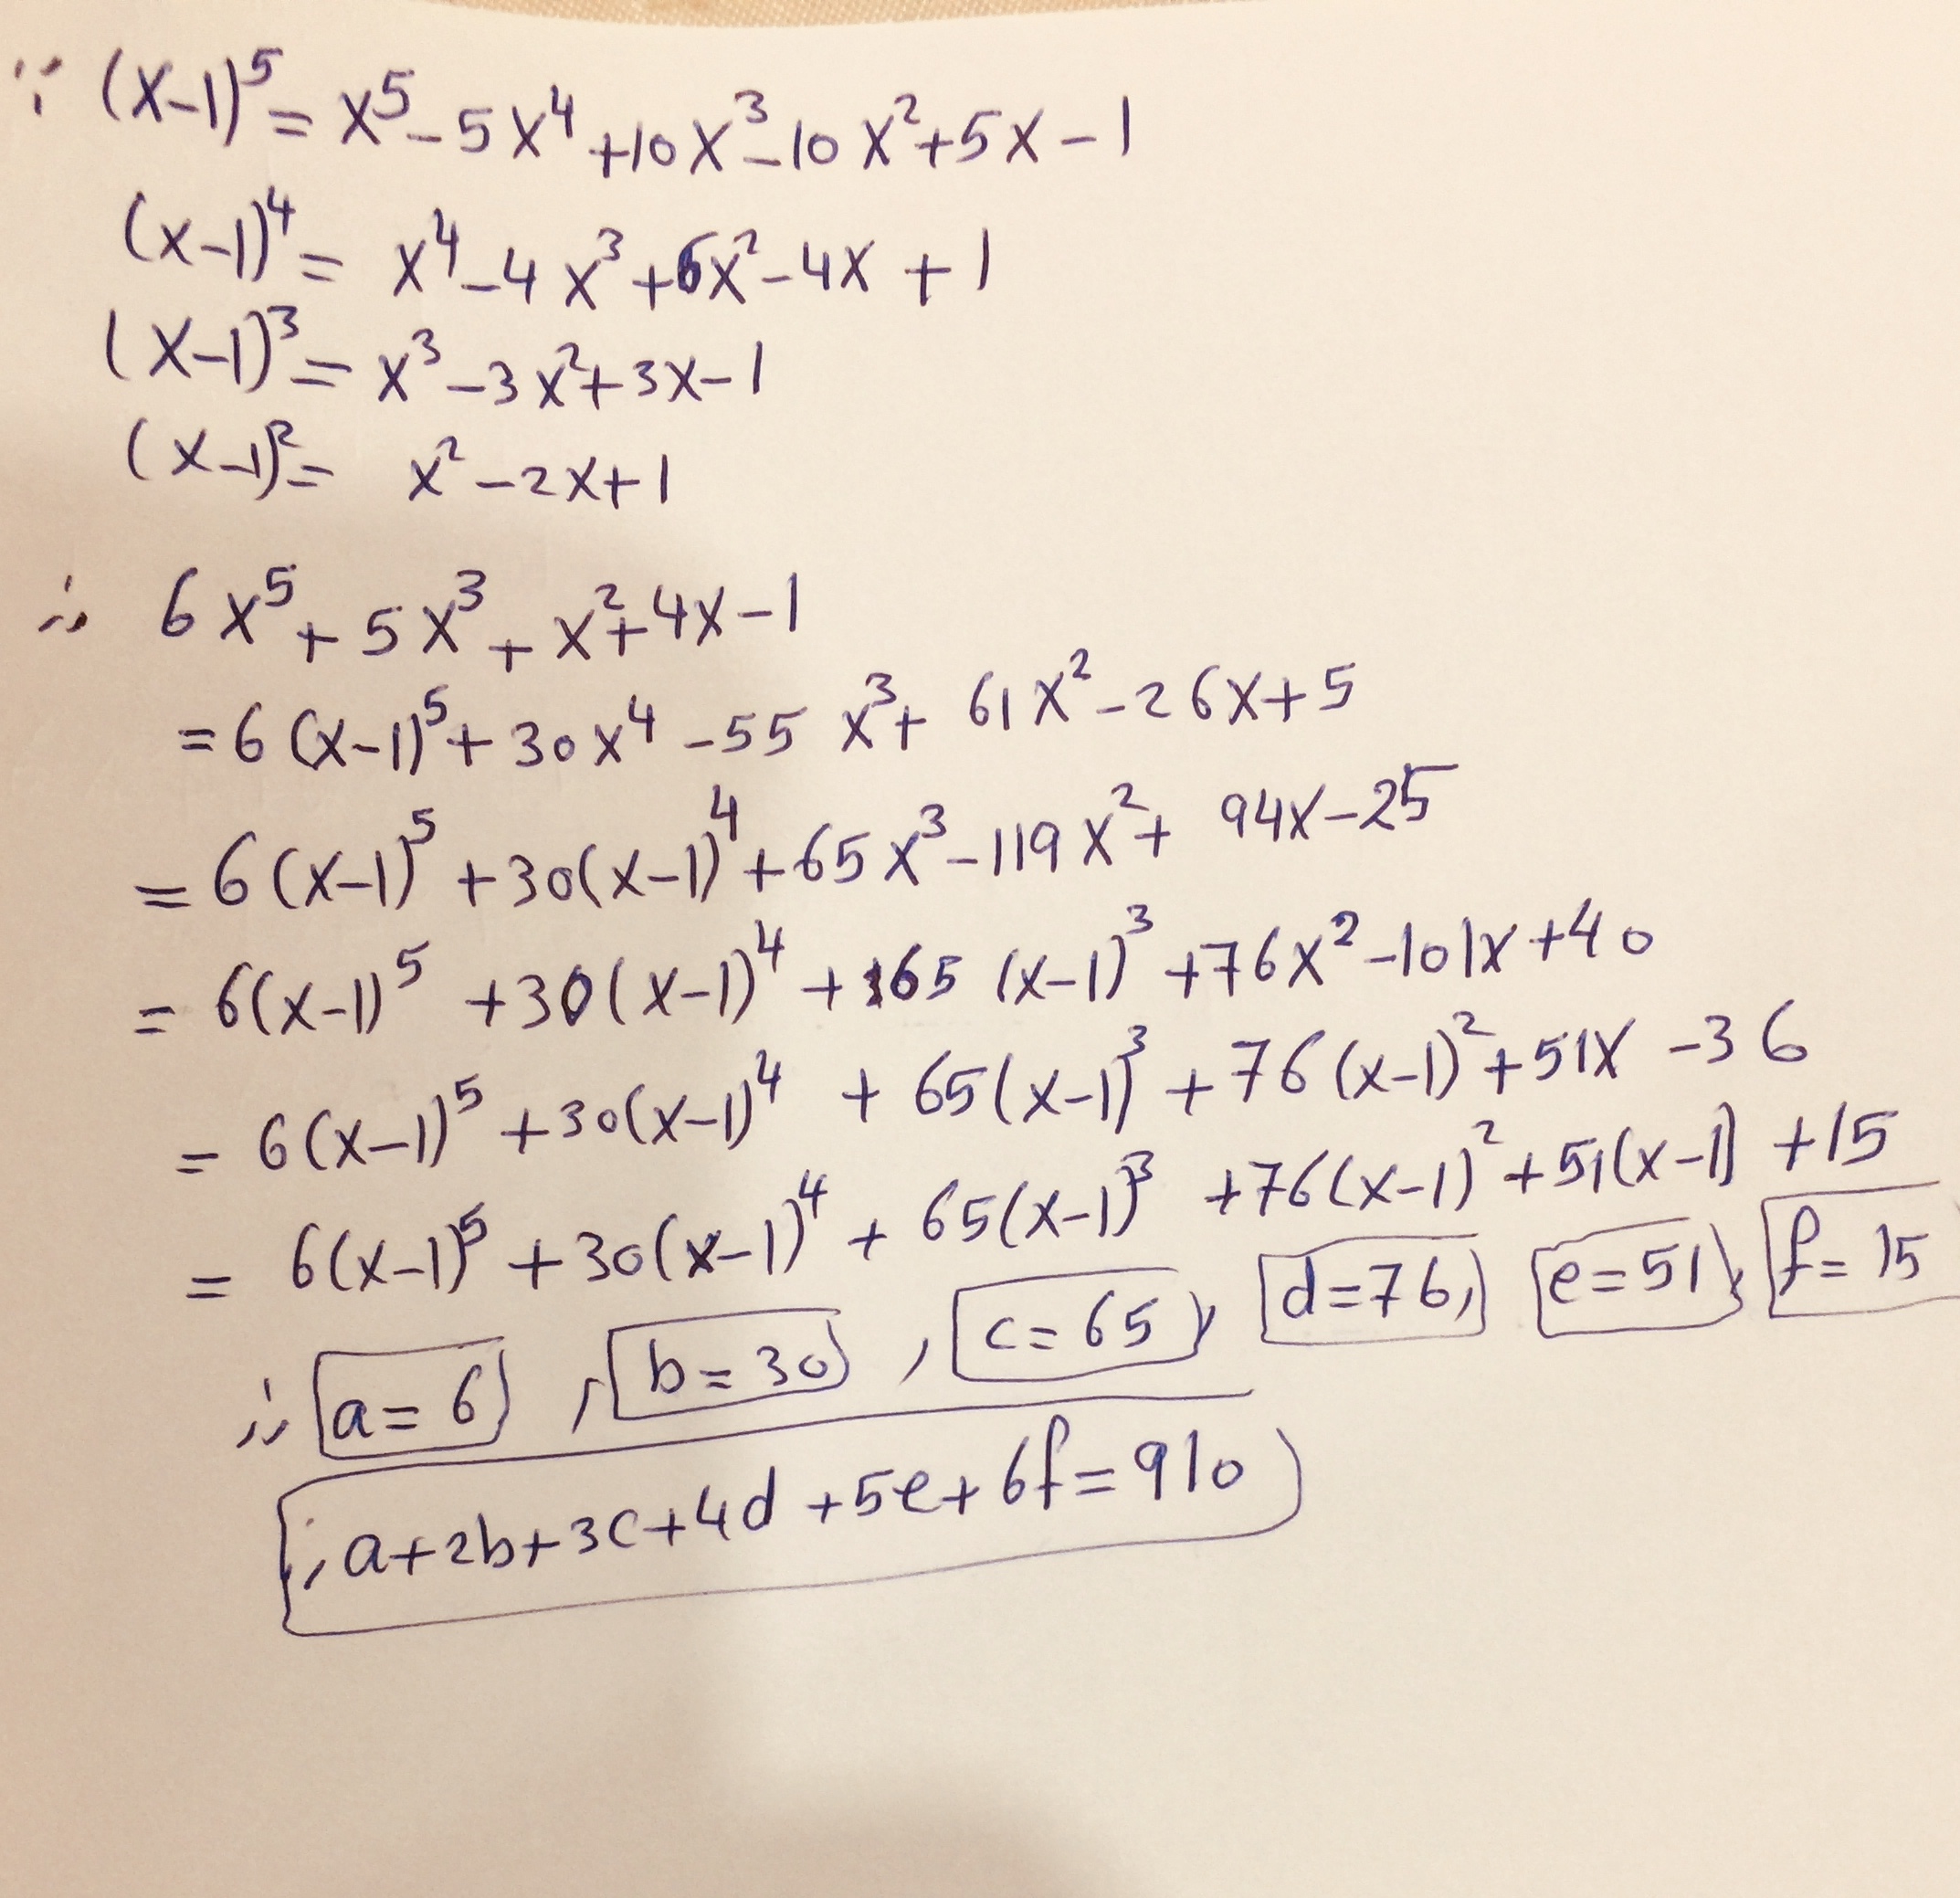 ∵ (x-1)⁵ = x⁵ - 5x⁴ + 10x³ - 10x² + 5x - 1
(x-1)⁴ = x⁴ - 4x³ + 6x² - 4x + 1
(x-1)³ = x³ - 3x² + 3x - 1
(x-1)² = x² - 2x + 1
∴ 6x⁵ + 5x³ + x² + 4x - 1
= 6(x-1)⁵ + 30x⁴ - 55x³ + 61x² - 26x + 5
= 6(x-1)⁵ + 30(x-1)⁴ + 65x³ - 119x² + 94x - 25
= 6(x-1)⁵ + 30(x-1)⁴ + 65(x-1)³ + 76x² - 101x + 40
= 6(x-1)⁵ + 30(x-1)⁴ + 65(x-1)³ + 76(x-1)² + 51x - 36
= 6(x-1)⁵ + 30(x-1)⁴ + 65(x-1)³ + 76(x-1)² + 51(x-1) + 15
∴ a = 6, b = 30, c = 65, d = 76, e = 51, f = 15
∴ a + 2b + 3c + 4d + 5e + 6f = 910